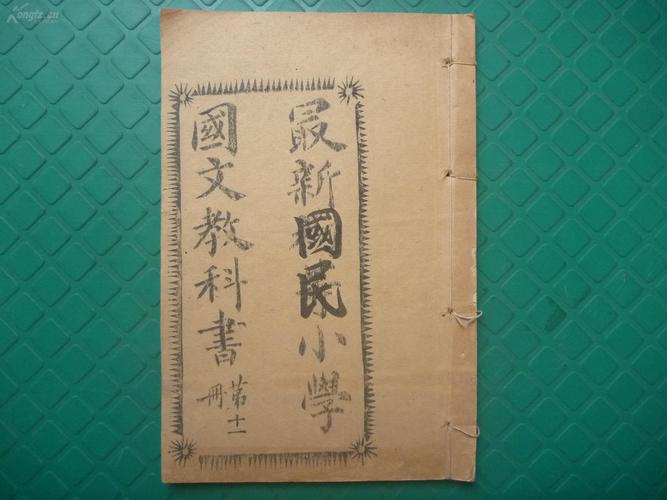 最新國民小學
國文教科書
第十一
冊
Kongfz.cn